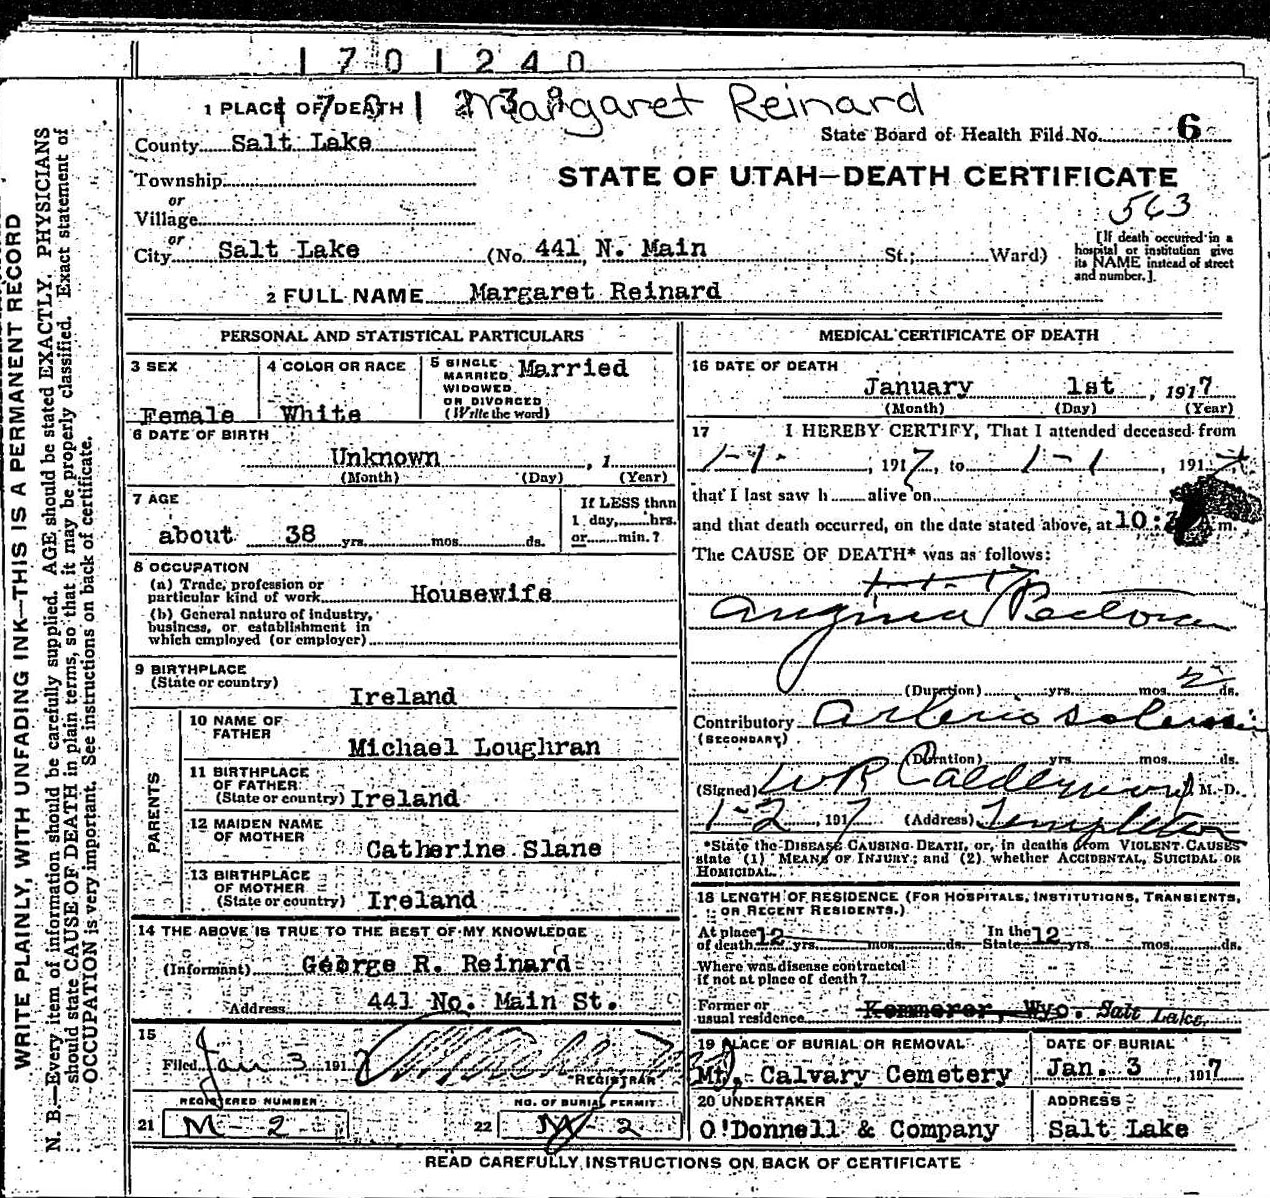 1701240
1 PLACE OF DEATH Margaret Reinard
State Board of Health File No. 6
County Salt Lake
STATE OF UTAH—DEATH CERTIFICATE
Township
or
Village
563
or
City Salt Lake (No. 441 N. Main St.; Ward)
[If death occurred in a
hospital or institution give
its NAME instead of street
and number.]
2 FULL NAME Margaret Reinard
PERSONAL AND STATISTICAL PARTICULARS
3 SEX
Female
4 COLOR OR RACE
White
5 SINGLE
MARRIED
WIDOWED
OR DIVORCED
(Write the word)
Married
6 DATE OF BIRTH
Unknown , 1
(Month) (Day) (Year)
7 AGE
about 38 yrs. mos. ds.
If LESS than
1 day, hrs.
or min.?
8 OCCUPATION
(a) Trade, profession or
particular kind of work Housewife
(b) General nature of industry,
business, or establishment in
which employed (or employer)
9 BIRTHPLACE
(State or country)
Ireland
PARENTS
10 NAME OF
FATHER
Michael Loughran
11 BIRTHPLACE
OF FATHER
(State or country) Ireland
12 MAIDEN NAME
OF MOTHER
Catherine Slane
13 BIRTHPLACE
OF MOTHER
(State or country) Ireland
14 THE ABOVE IS TRUE TO THE BEST OF MY KNOWLEDGE
(Informant) George R. Reinard
Address 441 No. Main St.
15
Filed Jan 3 1917
REGISTRAR
REGISTERED NUMBER
21 M-2
NO. OF BURIAL PERMIT
22 M-2
MEDICAL CERTIFICATE OF DEATH
16 DATE OF DEATH
January 1st , 1917
(Month) (Day) (Year)
17 I HEREBY CERTIFY, That I attended deceased from
1-1- , 1917, to 1-1 , 1917
that I last saw h alive on
and that death occurred, on the date stated above, at 10: m.
The CAUSE OF DEATH* was as follows:
Angina Pectoris
(Duration) yrs. mos. 2 ds.
Contributory
(SECONDARY)
(Duration) yrs. mos. ds.
(Signed) W R Calderwood M. D.
1-2, 1917 (Address) Templeton
*State the DISEASE CAUSING DEATH, or, in deaths from VIOLENT CAUSES
state (1) MEANS OF INJURY; and (2) whether ACCIDENTAL, SUICIDAL OR
HOMICIDAL.
18 LENGTH OF RESIDENCE (FOR HOSPITALS, INSTITUTIONS, TRANSIENTS,
OR RECENT RESIDENTS.)
At place
of death 12 yrs. mos. ds.
In the
State 12 yrs. mos. ds.
Where was disease contracted
if not at place of death?
Former or
usual residence Kemmerer, Wyo. Salt Lake
19 PLACE OF BURIAL OR REMOVAL
Mt. Calvary Cemetery
DATE OF BURIAL
Jan. 3 , 1917
20 UNDERTAKER
O'Donnell & Company
ADDRESS
Salt Lake
READ CAREFULLY INSTRUCTIONS ON BACK OF CERTIFICATE
WRITE PLAINLY, WITH UNFADING INK—THIS IS A PERMANENT RECORD
N. B.—Every item of information should be carefully supplied. AGE should be stated EXACTLY. PHYSICIANS
should state CAUSE OF DEATH in plain terms, so that it may be properly classified. Exact statement of
OCCUPATION is very important. See instructions on back of certificate.